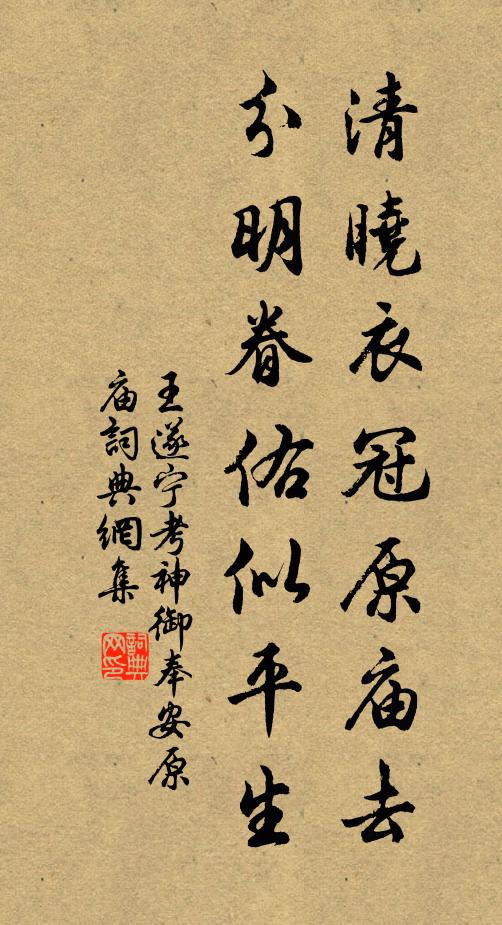 清曉衣冠原庙去
分明眷佑似平生
王遂宁考神御奉安原
庙詞典網集
詞典网印